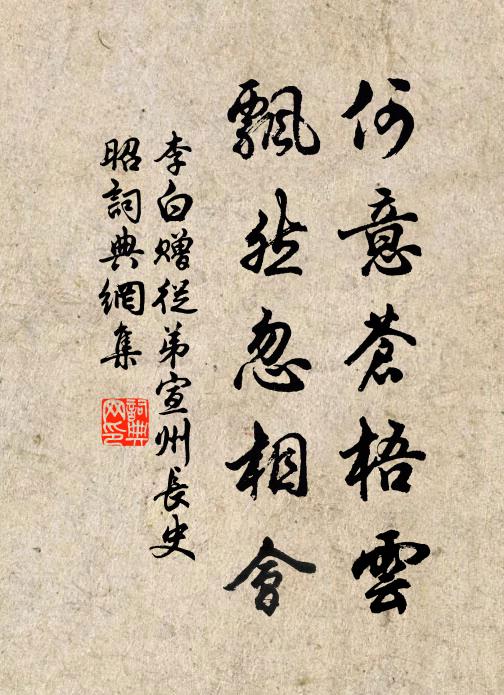 何意蒼梧雲
飄然忽相會
李白贈從弟宣州長史
昭詞典網集
詞典
网印